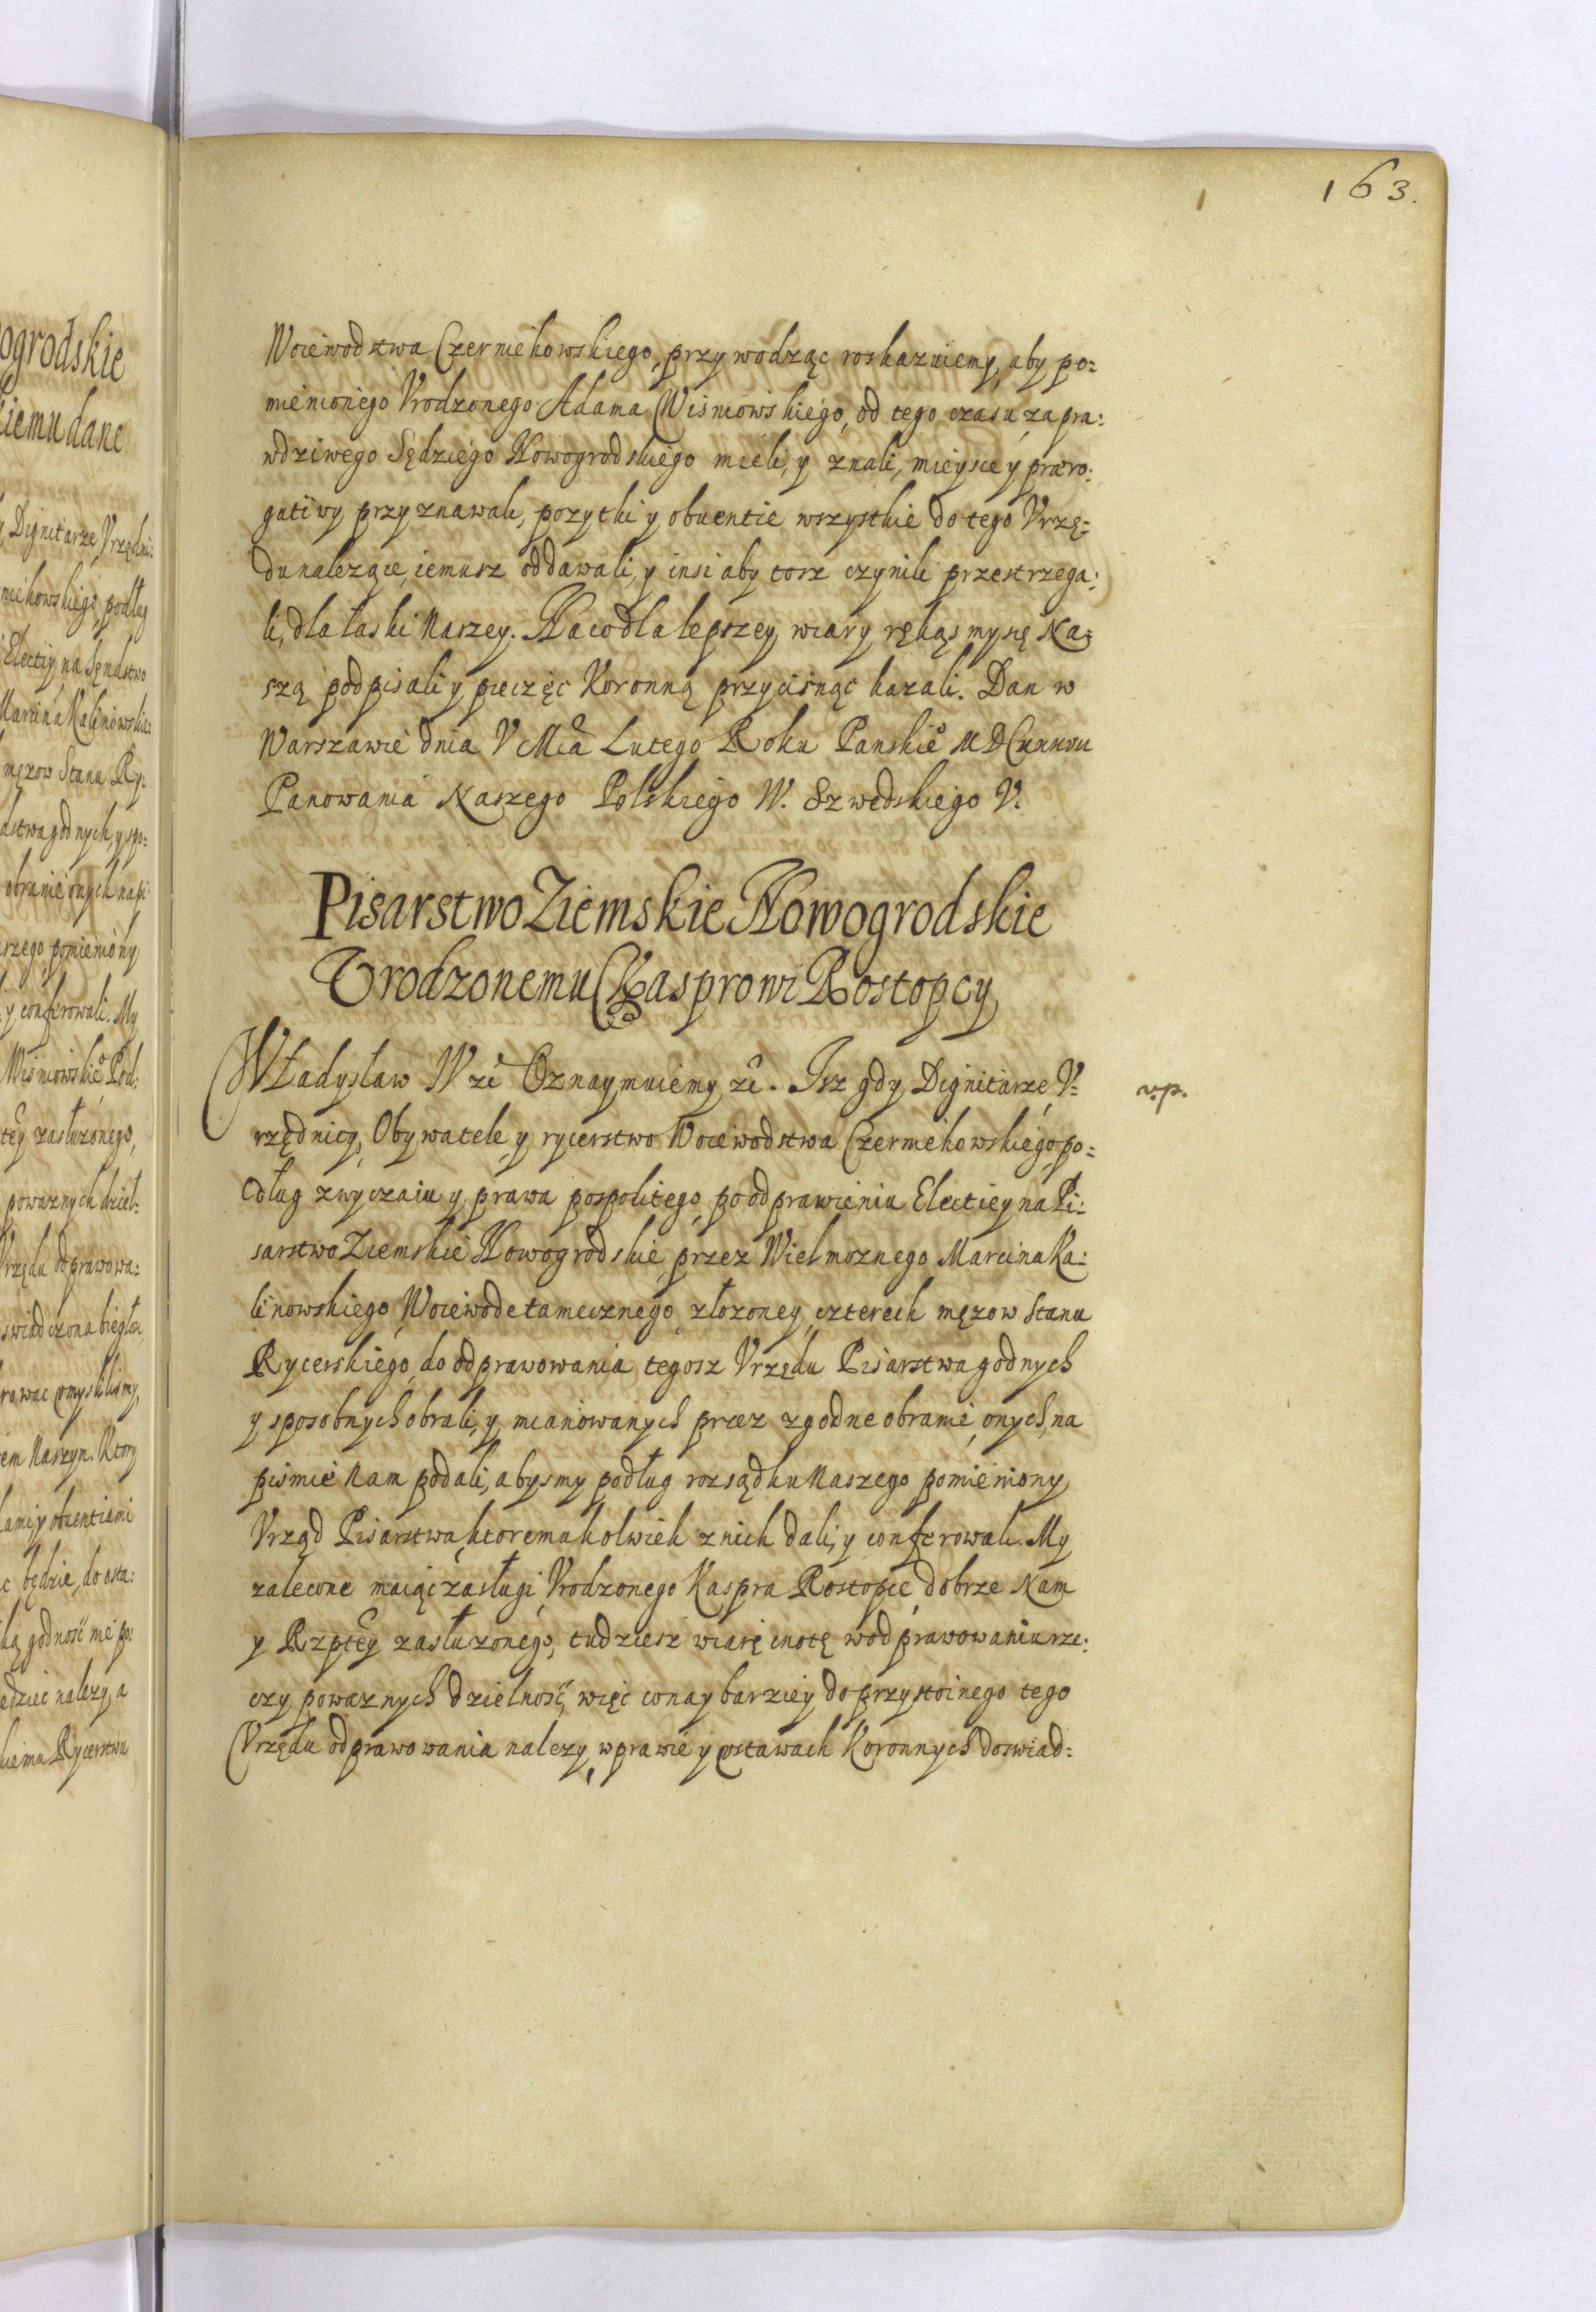 163.
Woiewodztwa Czerniehowskiego, przywodząc roskazuiemy, aby po:
mienionego Vrodzonego Adama Wiśniowskiego, od tego czasu, za pra:
wdziwego Sędziego Nowogrodskiego mieli, y znali, mieysce y præro:
gatiwy przyznawali, pozytki y obuentie wszystkie do tego Vrzę:
du nalezące, iemusz oddawali, y insi aby tosz czynili przestrzega:
li, dla łaski Naszey. Na co dla lepszey wiary ręką smy się Na:
szą podpisali y pieczęc Koronną przycisnąc kazali. Dan w
Warszawie dnia V Mca Lutego Roku Panskie
Panowania Naszego Polskiego IV. Szwedskiego V.
Pisarstwo Ziemskie Nowogrodskie
Vrodzonemu Kasprowi Rostopcy
Władysław IV ze Oznaymuiemy ze. Isz gdy Dignitarze, V:
v.p.
rzędnicy, Obywatele, y rycerstwo Woiewodstwa Czerniehowskiego, po:
dług zwyczaiu y prawa pospolitego, po odprawieniu Electiey na Pi:
sarstwo Ziemskie Nowogrodskie, przez Wielmoznego Marcina Ka:
linowskiego Woiewode tamecznego, złozoney, czterech męzow Stanu
Rycerskiego, do odprawowania tegosz Vrzędu Pisarstwa godnych
y sposobnych obrali, y mianowanych przez zgodne obranie, onych, na
pismie Nam podali, abysmy podług rozsądku Naszego pomieniony
Vrząd Pisarstwa, ktoremukolwiek z nich dali, y conferowali. My
zalecone maiąc zasługi Vrodzonego Kaspra Rostopce, dobrze Nam
y Rzptey zasłuzonego, tudziesz wiarę cnotę w odprawowaniu rze:
czy powaznych dzielność, więc co naybarziey do przystoinego tego
Vrzędu odprawowania nalezy, w prawie y ustawach Koronnych doswiad: